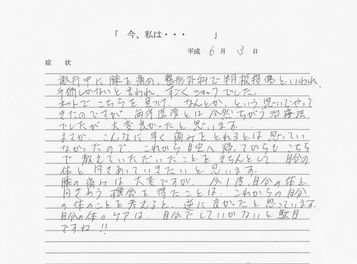 「 今、私は・・・ 」
平成 6月 3日
症 状
旅行中に膝を痛め、整形外科で半月板損傷といわれ、
手術しかないと言われ、すごくショックでした。
ネットでこちらを見つけ、なんとか、という思いでやって
きたのですが 西洋医学とは全然ちがう治療法
でしたが 大変良かったと思います。
まさか、こんなに早く痛みをとれるとは思ってい
なかったので、これから自宅へ帰ってからもこちら
で教えていただいたことをきちんとして、自分の
体と向きあっていきたいと思います。
膝の痛みは大変ですが、今1度、自分の体と
向きあう機会を得たことは、これからの自分
の体のことを考えると、逆に良かったと思っています。
自分の体のケアは、自分でしていかないと駄目
ですね!!